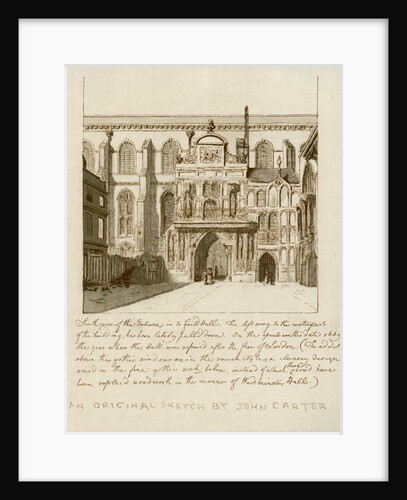 South view of the Entrance in to Guild Hall. The left wing to the counterpart
of the building, has been lately pulled down. On the spouts is this date 1669
the year when the Hall was repaired after the fire of London (The
above the gothic windows are in the roman style; a clumsy design
on the fine gothic work below, instead of which there should have
been replac'd woodwork in the manner of Westminster Hall.)
AN ORIGINAL SKETCH BY JOHN CARTER